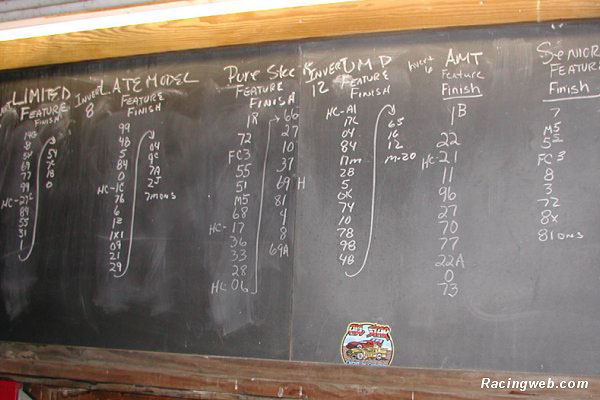 LIMITED
FEATURE
FINISH
8
54
69
77
99
HC-27c
89
55
31
1
54
7c
18
0
INVERT
8
LATE MODEL
FEATURE
FINISH
99
4B
5
84
0
HC-1C
76
6
12
1x1
09
21
29
04
9c
7A
2J
7MDNS
Pure Stoc
FEATURE
FINISH
18
72
FC3
55
51
M5
68
HC-17
36
33
28
HC-06
66
27
10
37
69
81
4
4
8
69A
INVERT
12
UMP
FEATURE
FINISH
HC-A1
17c
04
84
11m
2B
5
6K
74
10
78
98
48
65
16
12
m-20
Invert
6
AMT
Feature
Finish
1B
22
HC-21
11
96
27
70
77
22A
0
73
SENIOR
FEATURE
Finish
7
M5
5
FC3
8
3
72
8x
81DNS
Racingweb.com